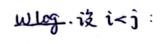 wlog. 设 i<j: